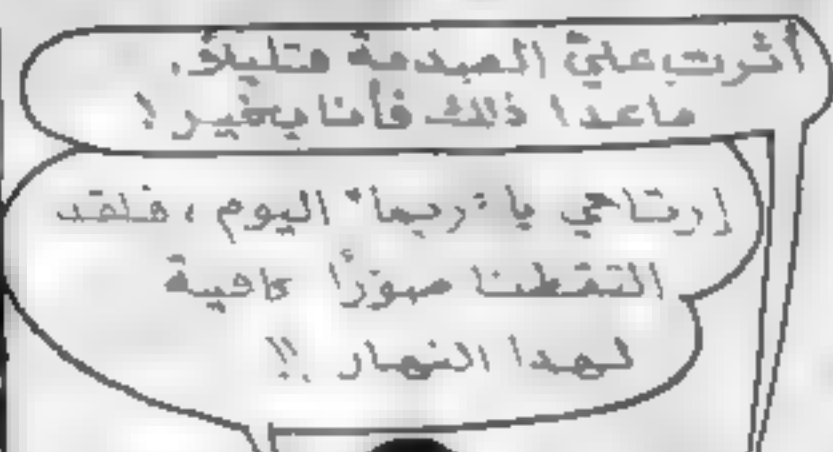 أثرت عليّ الصدمة قليلاً.
ماعدا ذلك فأنا بخير!
إرتاحي يا "ريما" اليوم، فلقد
التقطنا صورًا كافية
لهذا النهار!!